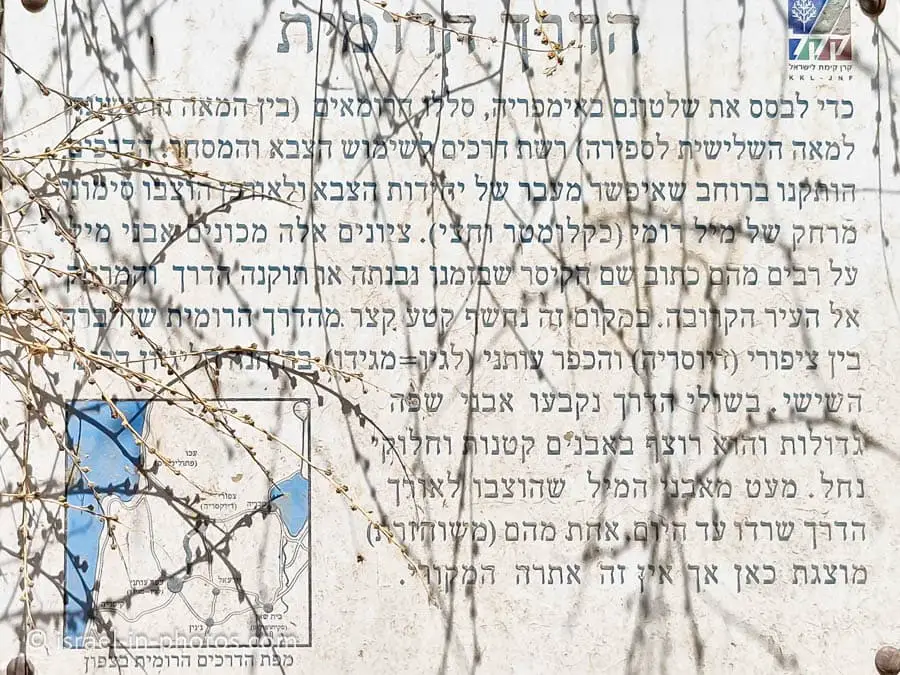 הדרך הרומית
קרן קימת לישראל
KKL-JNF
כדי לבסס את שלטונם באימפריה, סללו הרומאים (בין המאה הראשונה
למאה השלישית לספירה) רשת דרכים לשימוש הצבא והמסחר. הדרכים
הותקנו ברוחב שאיפשר מעבר של יחידות הצבא ולאורכן הוצבו סימוני
מרחק של מיל רומי (כקלומטר וחצי). ציונים אלה מכונים אבני מיל.
על רבים מהם כתוב שם הקיסר שבזמנו נבנתה או תוקנה הדרך והמרחק
אל העיר הקרובה. במקום זה נחשף קטע קצר מהדרך הרומית שחיברה
בין ציפורי (דיוסריה) והכפר עותני (לגיו=מגידו)
השישי. בשולי הדרך נקבעו אבני שפה
גדולות והוא רוצף באבנים קטנות וחלוקי
נחל. מעט מאבני המיל שהוצבו לאורך
הדרך שרדו עד היום. אחת מהם (משוחזרת)
מוצגת כאן אך אין זה אתרה המקורי.
עכו
צפורי
טבריה
כפר עותני
קיסריה
בית שאן
ג'נין
מפת הדרכים הרומית בצפון
© israel-in-photos.com